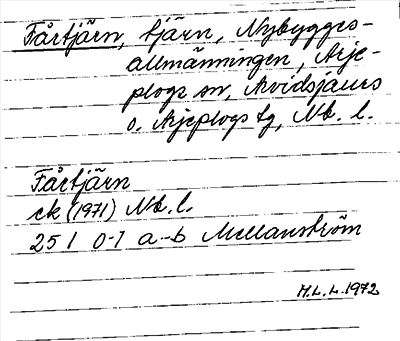 Fårtjärn, tjärn, Nybygges-
allmänningen, Arje-
plogs sn, Arvidsjaurs
o. Arjeplogs tg, Nb. l.
Fårtjärn
ek (1971) Nb. l.
25 I 0-1 a-b Mellanström
M.L.L. 1972